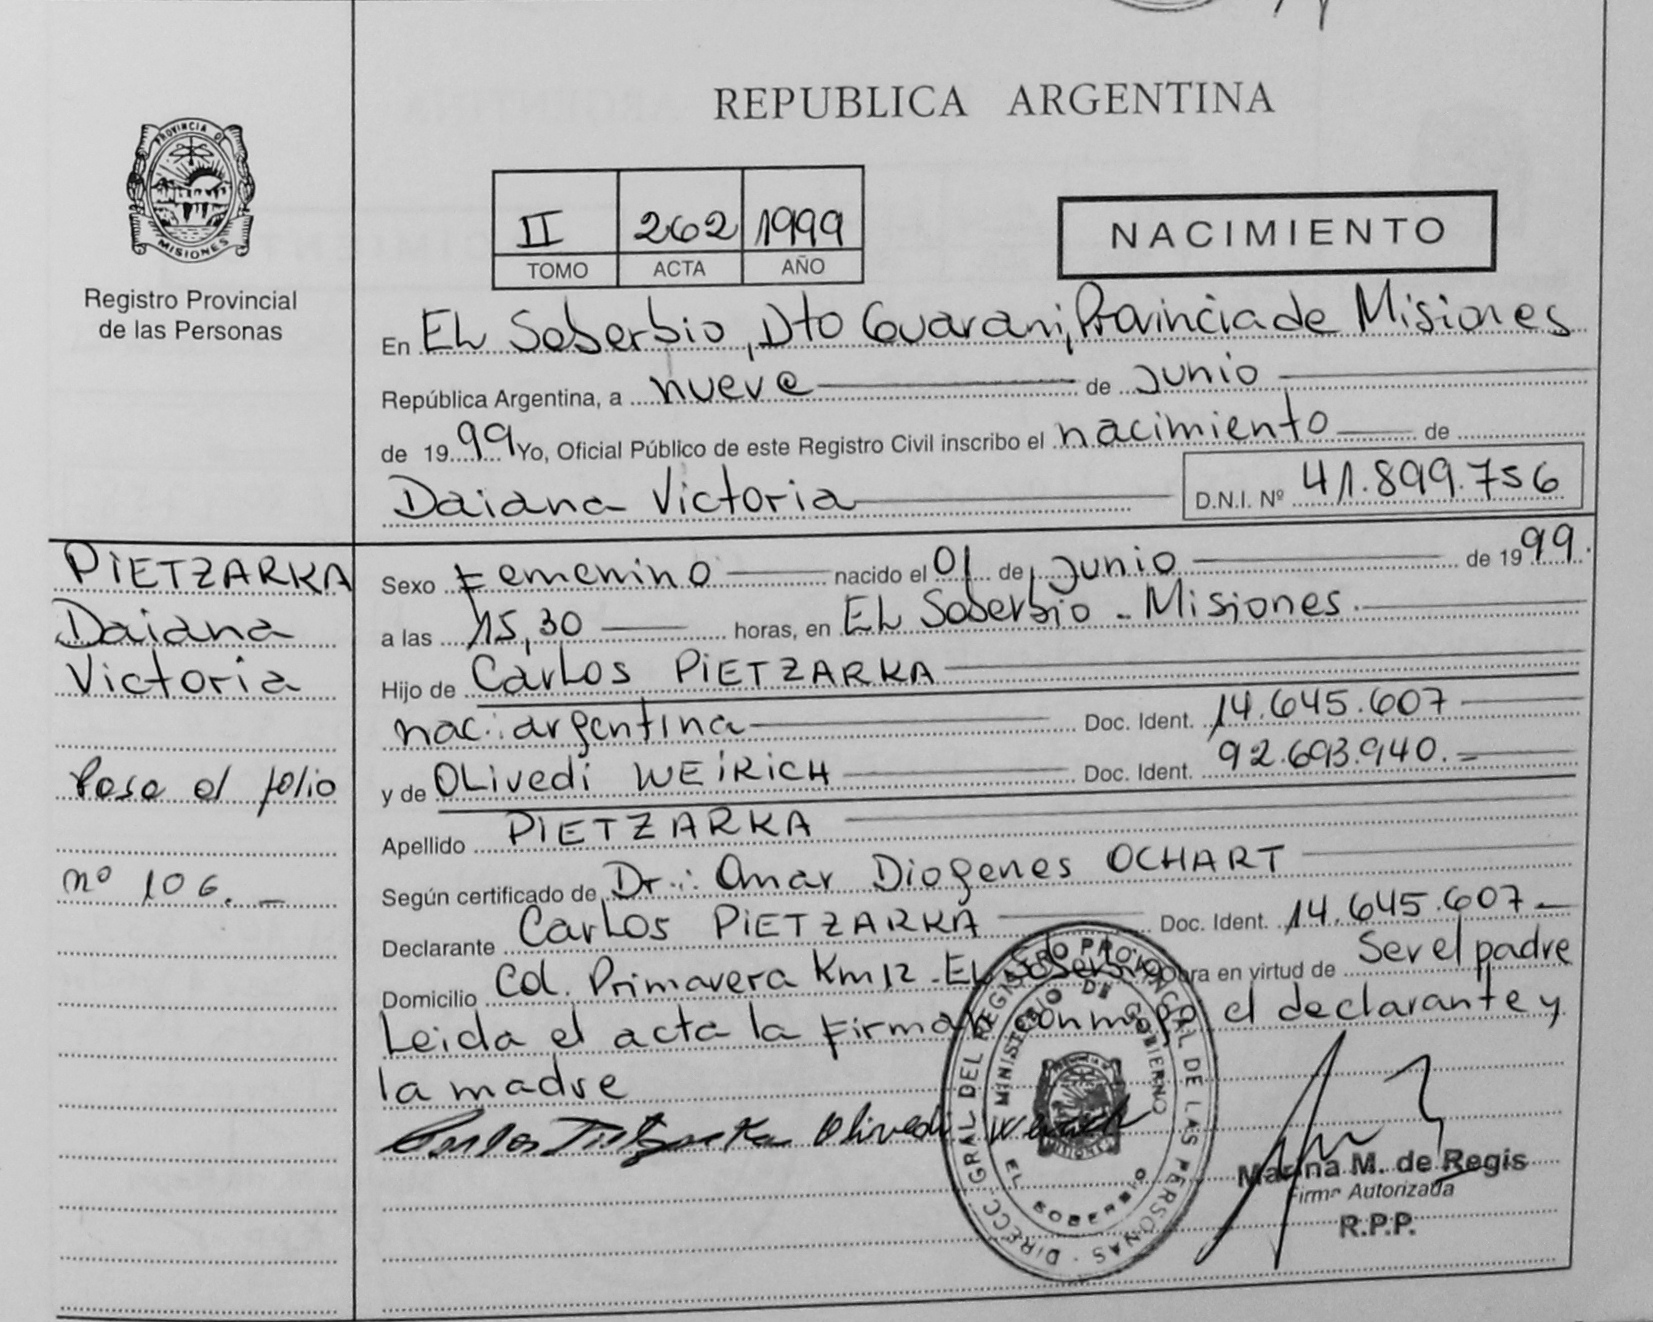 REPUBLICA ARGENTINA
PROVINCIA DE
MISIONES
Registro Provincial
de las Personas
II 262 1999
TOMO ACTA AÑO
NACIMIENTO
En EL Soberbio, Dto Guarani, Provincia de Misiones
República Argentina, a nueve de Junio
de 1999 Yo, Oficial Público de este Registro Civil inscribo el nacimiento de
Daiana Victoria D.N.I. Nº 41.899.756
PIETZARKA
Daiana
Victoria
Pase al folio
nº 106.
Sexo Femenino nacido el 01 de Junio de 1999.
a las 15,30 horas, en EL Soberbio - Misiones.
Hijo de Carlos PIETZARKA
nac: argentina Doc. Ident. 14.645.607
y de OLivedi WEIRICH Doc. Ident. 92.693.940.
Apellido PIETZARKA
Según certificado de Dr.: Omar Diogenes OCHART
Declarante Carlos PIETZARKA Doc. Ident. 14.645.607
Domicilio Col. Primavera Km 12 - EL Soberbio Obra en virtud de Ser el padre
Leida el acta la firman conmigo el declarante y
la madre
Carlos Pietzarka Olivedi Weirich
DIRECC. GRAL DEL REGISTRO PROVINCIAL DE LAS PERSONAS
MINISTERIO DE GOBIERNO
EL SOBERBIO
MISIONES
Marina M. de Regis
Firma Autorizada
R.P.P.